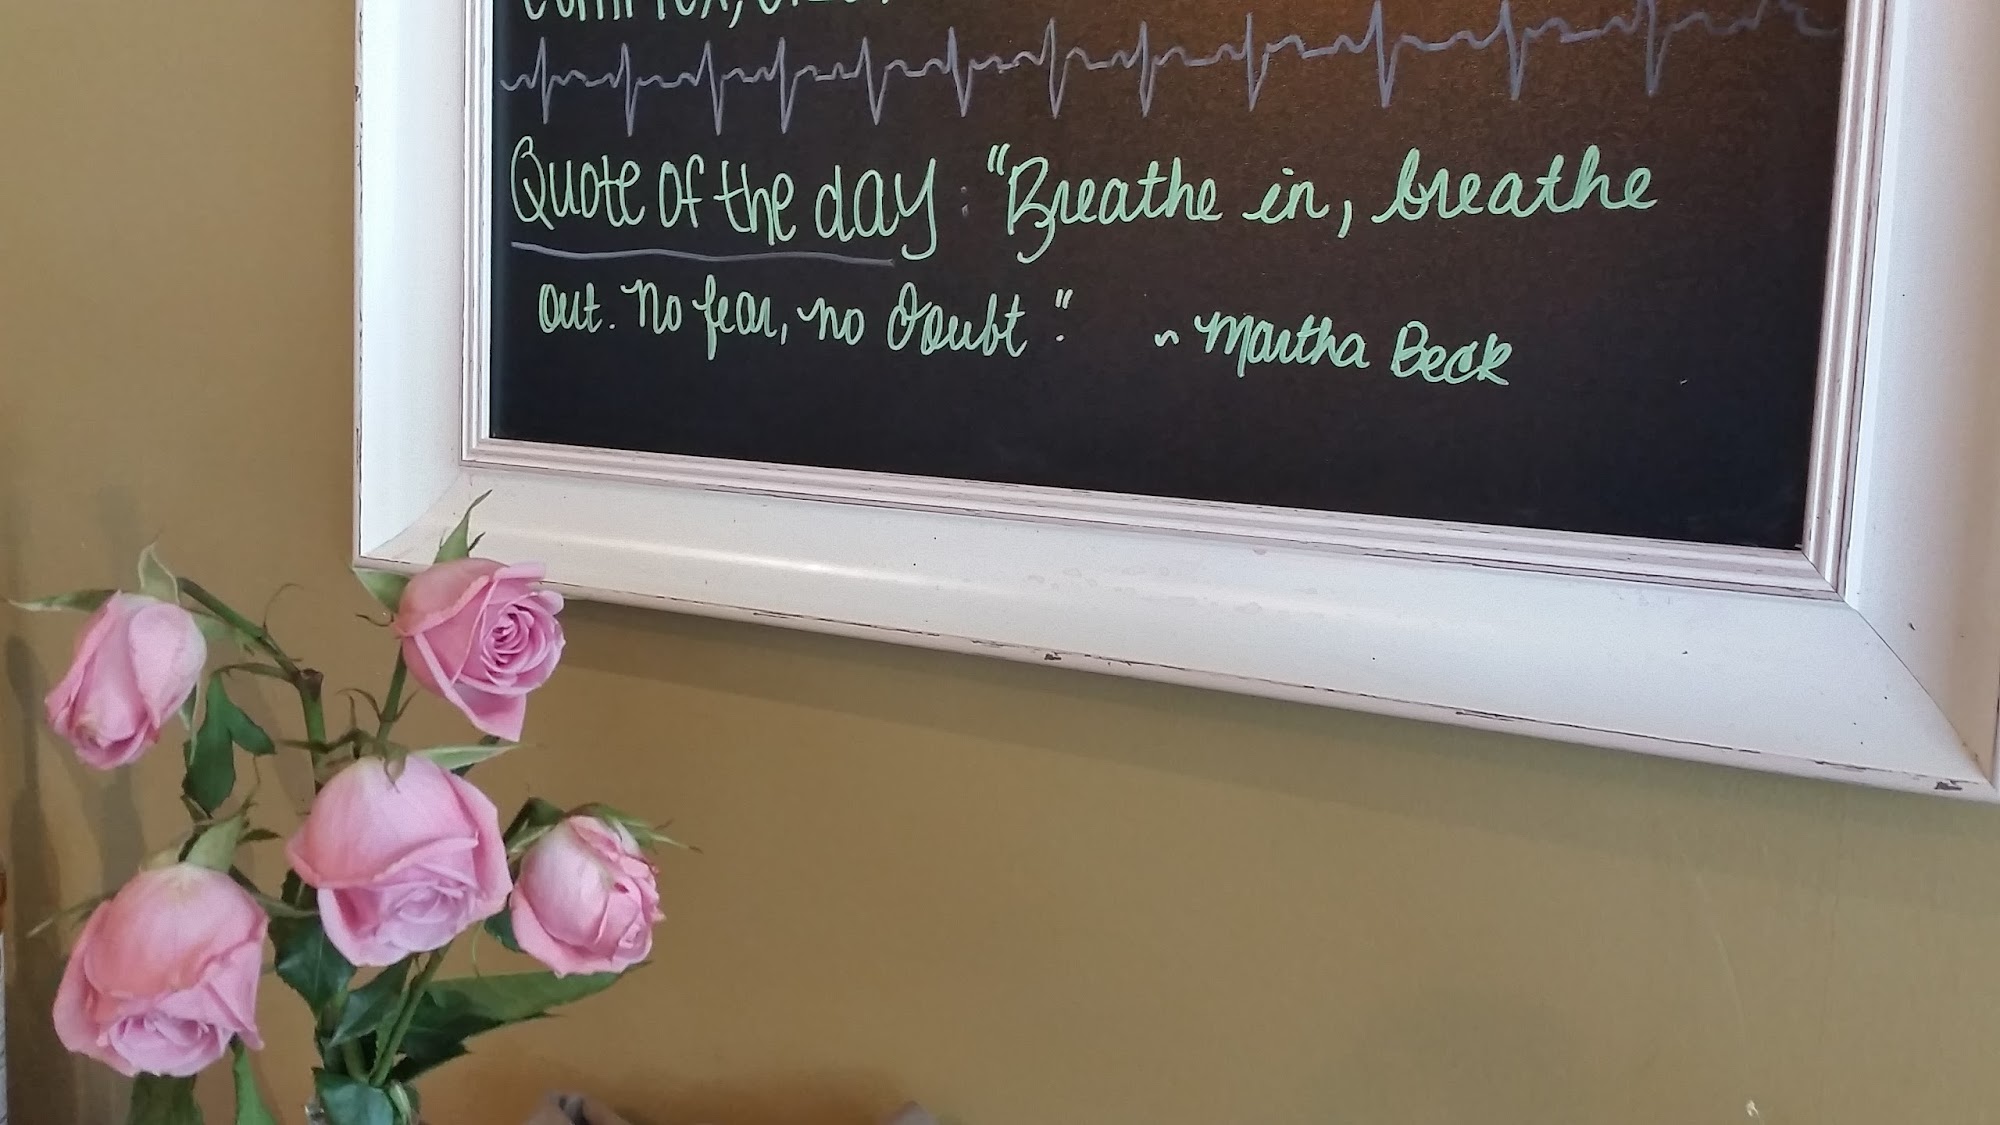 Quote of the day: "Breathe in, breathe
out. No fear, no doubt." ~ Martha Beck